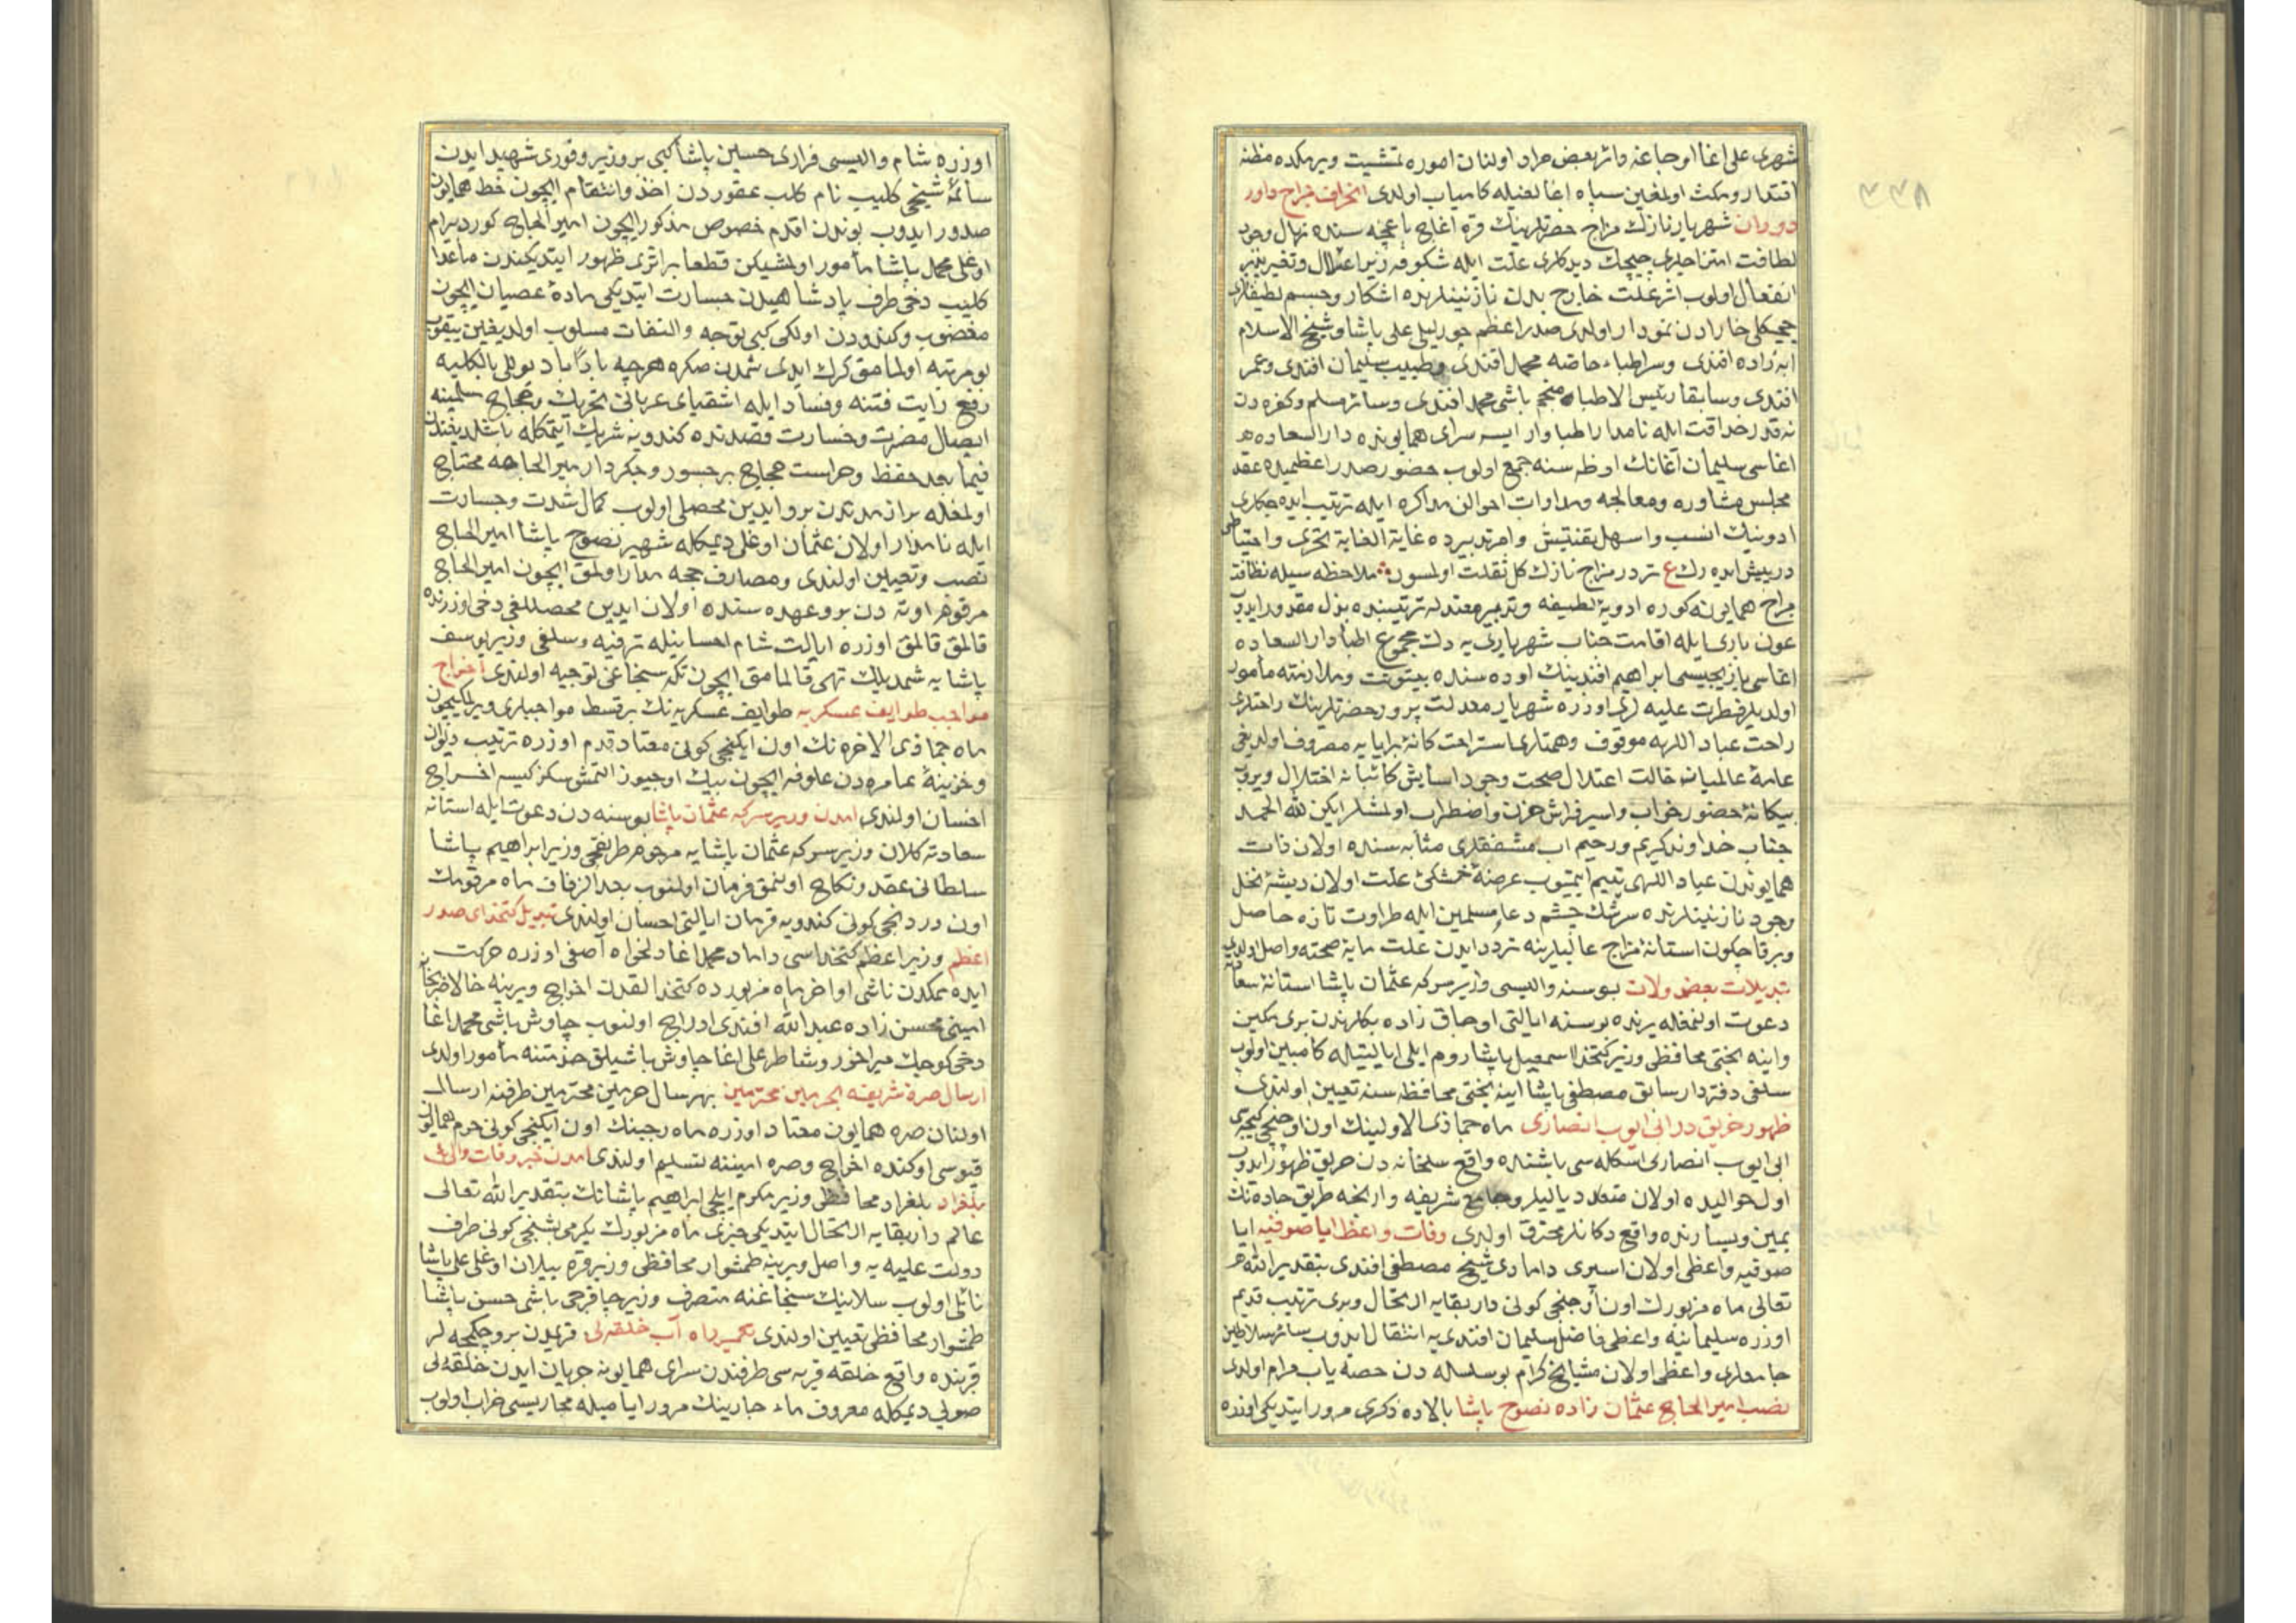 شهری علی اغا اوجاغنه دائر بعض مراد اولنان اموره تمشیت ویرمکده مظنه
اقتدار ومکث اولمغین سپاه اغالغیله کامیاب اولدی انحراف مزاج داور
دوران شهریار نازك مزاج حضرتلرینك قره اغاج باغچه سنده نهال وجود
لطافت امتزاجلری چیچك دیدکلری علت ایله شکوفه زیر اعتلال وتغیرپذیر
انفعال اولوب اثر علت خارج بدن نازنینلرنده اشکار وجسم لطیفلری
چیچکلی خارادن نمودار اولدی صدر اعظم چورلیلی علی پاشا وشیخ الاسلام
ابه زاده افندی وسر اطباء خاصه محمد افندی وطبیب سلیمان افندی وعمر
افندی وسابقا رئیس الاطباء منجم باشی محمد افندی وسائر مسلم وکفره دن
نه قدر حذاقت ایله نامدار اطبا وار ایسه سرای همایونده دار السعاده
اغاسی سلیمان آغانك اوطه سنه جمع اولوب حضور صدر اعظمیده عقد
مجلس مشاوره ومعالجه ومداوات احوالن مذاکره ایله ترتیب ایده جکلری
ادویه نك انسب واسهل تفتیش وامر تدبیرده غایة الغایة تحری واحتیاطی
درپیش ایده رك ع تردر مزاج نازك کل ثقلت اولمسون ملاحظه سیله نظافت
مزاج همایونه کوره ادویۀ لطیفه وتدبیر معتدله ترتیبنده بذل مقدور ایدوب
عون باری ایله اقامت جناب شهریاری یه دك مجموع اطبا دار السعاده
اغاسی یازیجیسی ابراهیم افندینك اوده سنده بیتوتت وملازمته مأمور
اولدیلر فطرت علیه لری اوزره شهریار معدلت پرور حضرتلرینك راحتلری
راحت عباد اللهه موقوف وهمتلری استراحت کافۀ برایایه مصروف اولدیغی
عامۀ عالمیانه حالت اعتدال صحت وجود اسایش کائناته اختلال ویروب
بیکانۀ حضور خواب واسیر فراش حزن واضطراب اولمشلر ایکن لله الحمد
جناب خداوند کریم ورحیم اب مشفقلری مثابه سنده اولان ذات
همایوندن عباد اللهی یتیم ایتمیوب عرضۀ خشکئ علت اولان ریشۀ نخل
وجود نازنینلرنده سرشك چشم دعاء مسلمین ایله طراوت تازه حاصل
وبرقاچکون استانۀ مزاج عالیلرینه تردد ایدن علت مایۀ صحته واصل اولدی
تبدیلات بعض ولات بوسنه والیسی وزیر سرکه عثمان پاشا استانۀ سعادته
دعوت اولنمغله یرنده بوسنه ایالتی اوجاق زاده بکلرندن بری مکین
واینه بختی محافظی وزیر کتخدا اسمعیل پاشا روم ایلی ایالتیله کامبین اولوب
سلفی دفتردار سابق مصطفی پاشا اینه بختی محافظه سنه تعیین اولندی
ظهور حریق در ابی ایوب انصاری ماه جماذی الاولینك اون اوچنجی کیجه سی
ابی ایوب انصاری اسکله سی باشنده واقع سلخانه دن حریق ظهور ایدوب
اول حوالیده اولان متعدد یالیلر وجامع شریفه وارنجه طریق جاده نك
یمین ویسارنده واقع دکانلر محترق اولدی وفات واعظ ایا صوفیه ایا
صوفیه واعظی اولان اسپری دامادی شیخ مصطفی افندی بتقدیر الله
تعالی ماه مزبورك اون اوچنجی کونی دار بقایه ارتحال ویری ترتیب قدیم
اوزره سلیمانیه واعظی فاضل سلیمان افندی یه انتقال ایدوب سائر سلاطین
جامعلری واعظی اولان مشایخ کرام بو سلسله دن حصه یاب مرام اولدی
نصب امیر الحاج عثمان زاده نصوح پاشا بالاده ذکری مرور ایتدیکی اوزره
اوزره شام والیسی فراری حسین پاشا کبی بر وزیر وقوری شهید ایدن
سائمۀ شیخی کلیب نام کلب عقوردن اخذ وانتقام ایچون خط همایون
صدور ایدوب بوندن اقدم خصوص مذکور ایچون امیر الحاج کورد بیرام
اوغلی محمد پاشا مأمور اولمشیکن قطعا بر اثری ظهور ایتدیکندن ماعدا
کلیب دخی طرف پادشاهیدن جسارت ایتدیکی مادۀ عصیان ایچون
مغضوب وکندودن اولکی کبی توجه والتفات مسلوب اولدیغین بیقوب
بو مرتبه اولمامق کرك ایدی شمدن صکره هرچه باداباد بوللی بالکلیه
رفع رایت فتنه وفساد ایله اشقیای عربانی تحریك وحجاج مسلمینه
ایصال مضرت وخسارت قصدنده کندویه شریك ایتمکله باشلدیغندن
فیما بعد حفظ وحراست حجاج بر جسور وجکردار میر الحاجه محتاج
اولمغله براز مدتدن برو ایدین محصلی اولوب کمال شدت وجسارت
ایله نامدار اولان عثمان اوغلی دیمکله شهیر نصوح پاشا امیر الحاج
نصب وتعیین اولندی ومصارف حجه مدار اولمق ایچون امیر الحاج
مرقومر اوته دن برو عهده سنده اولان ایدین محصللغی دخی اوزرنده
قالمق قالمق اوزره ایالت شام احسانیله ترفیه وسلفی وزیر یوسف
پاشایه شمدیلك تهی قالمامق ایچون تکه سنجاغی توجیه اولندی اخراج
مواجب طوایف عسکریه طوایف عسکریه نك بر قسط مواجبلری ویرلمکیچون
ماه جماذی الاخره نك اون ایکنجی کونی معتاد قدم اوزره ترتیب دیوان
وخزینۀ عامره دن علوفه ایچون بیك اوچیوز التمش سکز کیسه اخراج
احسان اولندی امدن وزیر سرکه عثمان پاشا بوسنه دن دعوت ایله استانه
سعادته کلان وزیر سرکه عثمان پاشایه مرحوم طریقجی وزیر ابراهیم پاشا
سلطانی عقد ونکاح اولنمق فرمان اولنوب بعد الزفاف ماه مرقومك
اون دردنجی کونی کندویه قرمان ایالتی احسان اولندی تبدیل کتخدای صدر
اعظم وزیر اعظم کتخداسی داماد محمد اغا دلخواه آصفی اوزره حرکت
ایده مکدن ناشی اواخر ماه مزبورده کتخدالقدن اخراج ویرینه حالا ضربخانه
امینی محسن زاده عبد الله افندی ادراج اولنوب چاوش باشی محمد اغا
دخی کوچك میراخور وشاطر علی اغا چاوش باشیلق خذمتنه مأمور اولدی
ارسال صرۀ شریفه الحرمین محترمین بهر سال حرمین محترمین طرفنه ارسال
اولنان صره همایون معتاد اوزره ماه رجبنك اون ایکنجی کونی حرم همایون
قپوسی اوکنده اخراج وصره امیننه تسلیم اولندی امدن خبر وفات والئ
بلغراد بلغراد محافظی وزیر مکرم ایلچی ابراهیم پاشانك بتقدیر الله تعالی
عالم دار بقایه ارتحال ایتدیکی خبری ماه مزبورك یکرمی بشنجی کونی طرف
دولت علیه یه واصل ویرینه طمشوار محافظی وزیر قره ییلان اوغلی علی پاشا
نائل اولوب سلانیك سنجاغنه متصرف وزیر چاقرجی باشی حسن پاشا
طمشوار محافظی تعیین اولندی تعمیر راه آب خلقه لی قدیمدن برو چکمجه لر
قربنده واقع خلقه قریه سی طرفندن سرای همایونه جریان ایدن خلقه لی
صویی دیمکله معروف ماء جارینك مرور ایامیله مجاریسی خراب اولوب